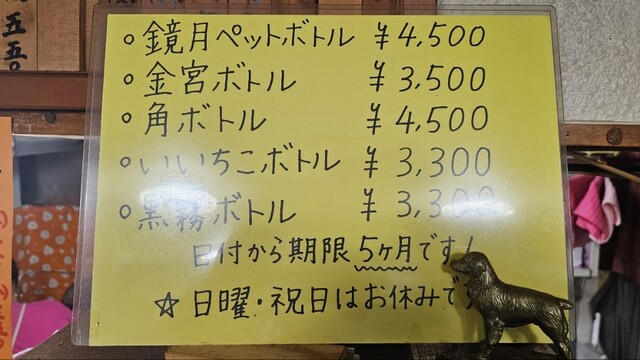 五五〇
○鏡月ペットボトル ¥4,500
○金宮ボトル ¥3,500
○角ボトル ¥4,500
○いいちこボトル ¥3,300
○黒霧ボトル ¥3,300
日付から期限5ヶ月です!
☆日曜・祝日はお休みです